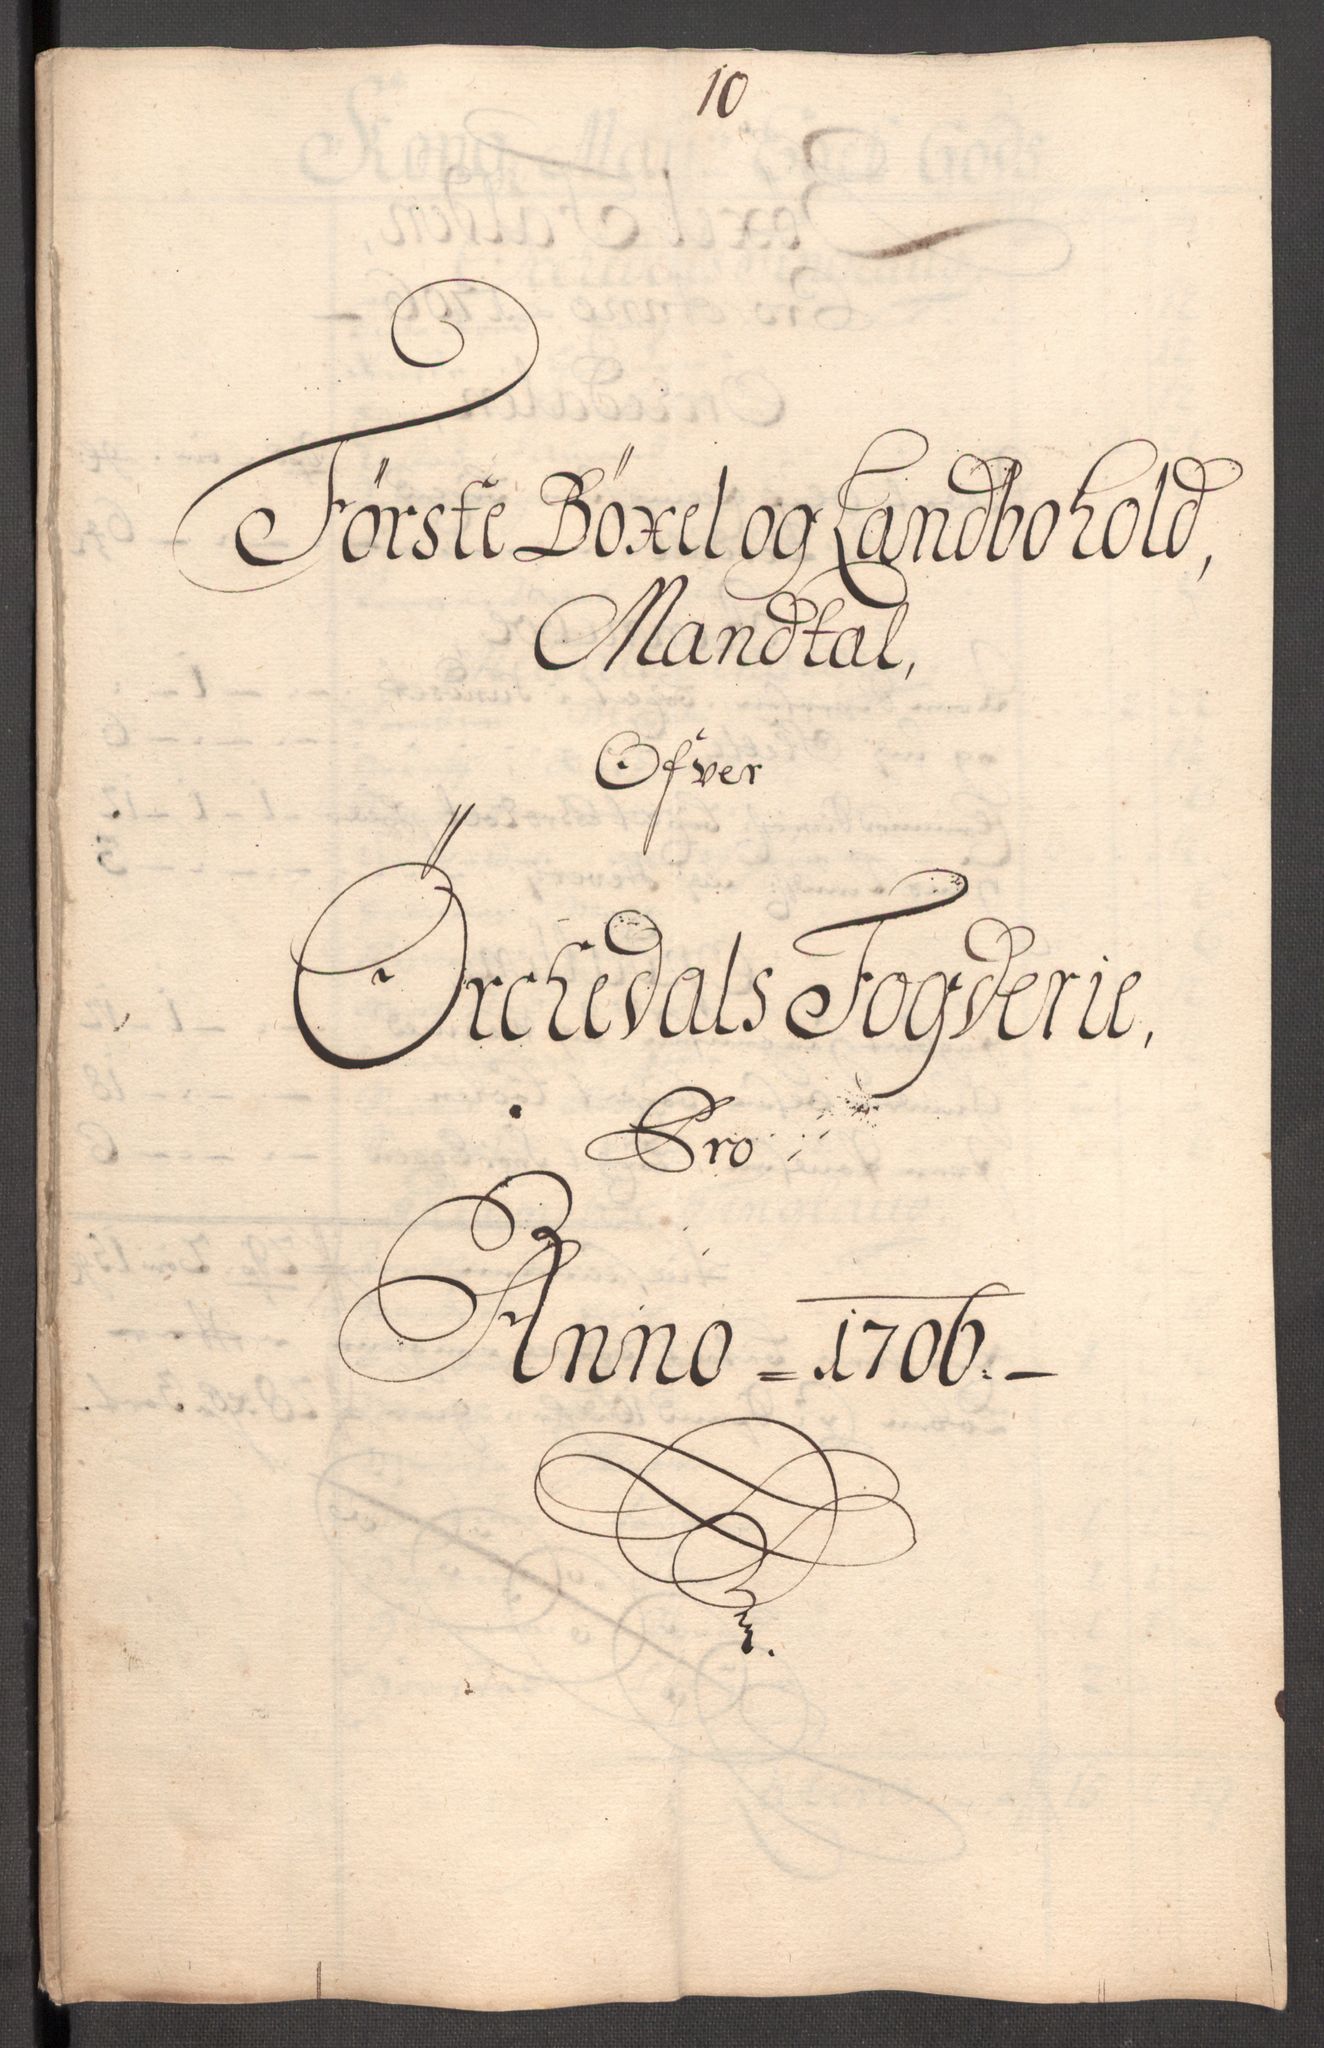 10
Förste Böxel og Landbohold,
Mandtal,
Ofver
Örchedals Fogderie,
Pro
Anno = 1706. –